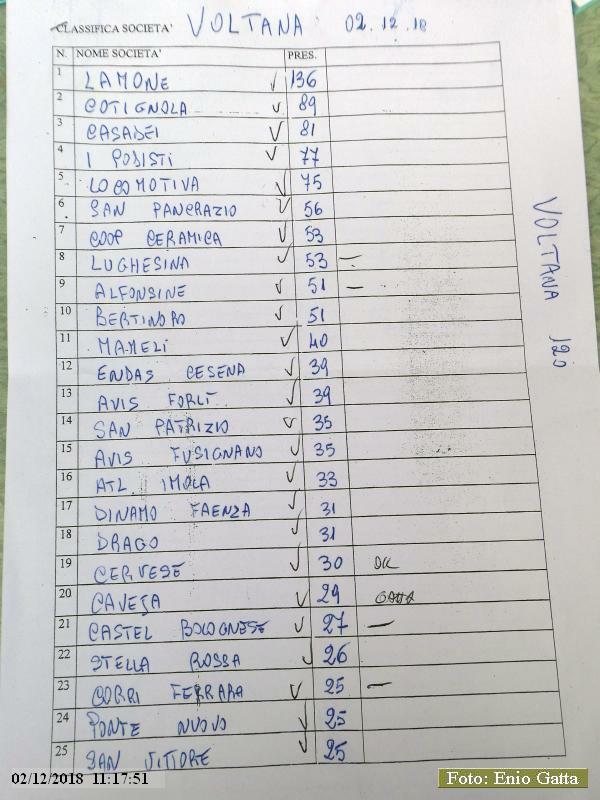 CLASSIFICA SOCIETA' VOLTANA 02.12.18
N. NOME SOCIETA' PRES.
1 LAMONE 136
2 COTIGNOLA 89
3 CASADEI 81
4 I PODISTI 77
5 LOCOMOTIVA 75
6 SAN PANCRAZIO 56
7 COOP CERAMICA 53
8 LUGHESINA 53 –
9 ALFONSINE 51 –
10 BERTINORO 51
11 MAMELI 40
12 ENDAS CESENA 39
13 AVIS FORLÌ 39
14 SAN PATRIZIO 35
15 AVIS FUSIGNANO 35
16 ATL. IMOLA 33
17 DINAMO FAENZA 31
18 DRAGO 31
19 CERVESE 30 OK
20 CAVEJA 29
21 CASTEL BOLOGNESE 27 –
22 STELLA ROSSA 26
23 CORRI FERRARA 25 –
24 PONTE NUOVO 25
25 SAN VITTORE 25
VOLTANA 120
02/12/2018 11:17:51
Foto: Enio Gatta